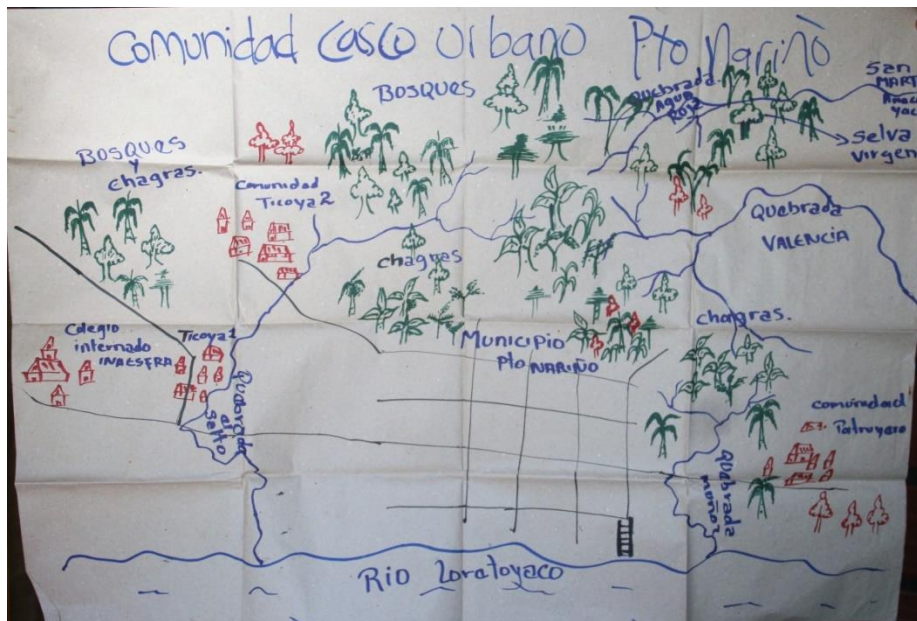 Comunidad Casco Urbano Pto Nariñò
BOSQUES
Quebrada
AGUA
ROJA
San
MART
Amac
Yac
Selva
Virgen
BOSQUES
Y
chagras.
Comunidad
Ticoya 2
Quebrada
VALENCIA
chagras
chagras.
Colegio
internado
INAESFRA
Ticoya 1
Municipio
Pto NARIÑO
Quebrada
del
Salto
Comunidad
Patruyaco
Quebrada
muñoz
Rio Loratoyaco